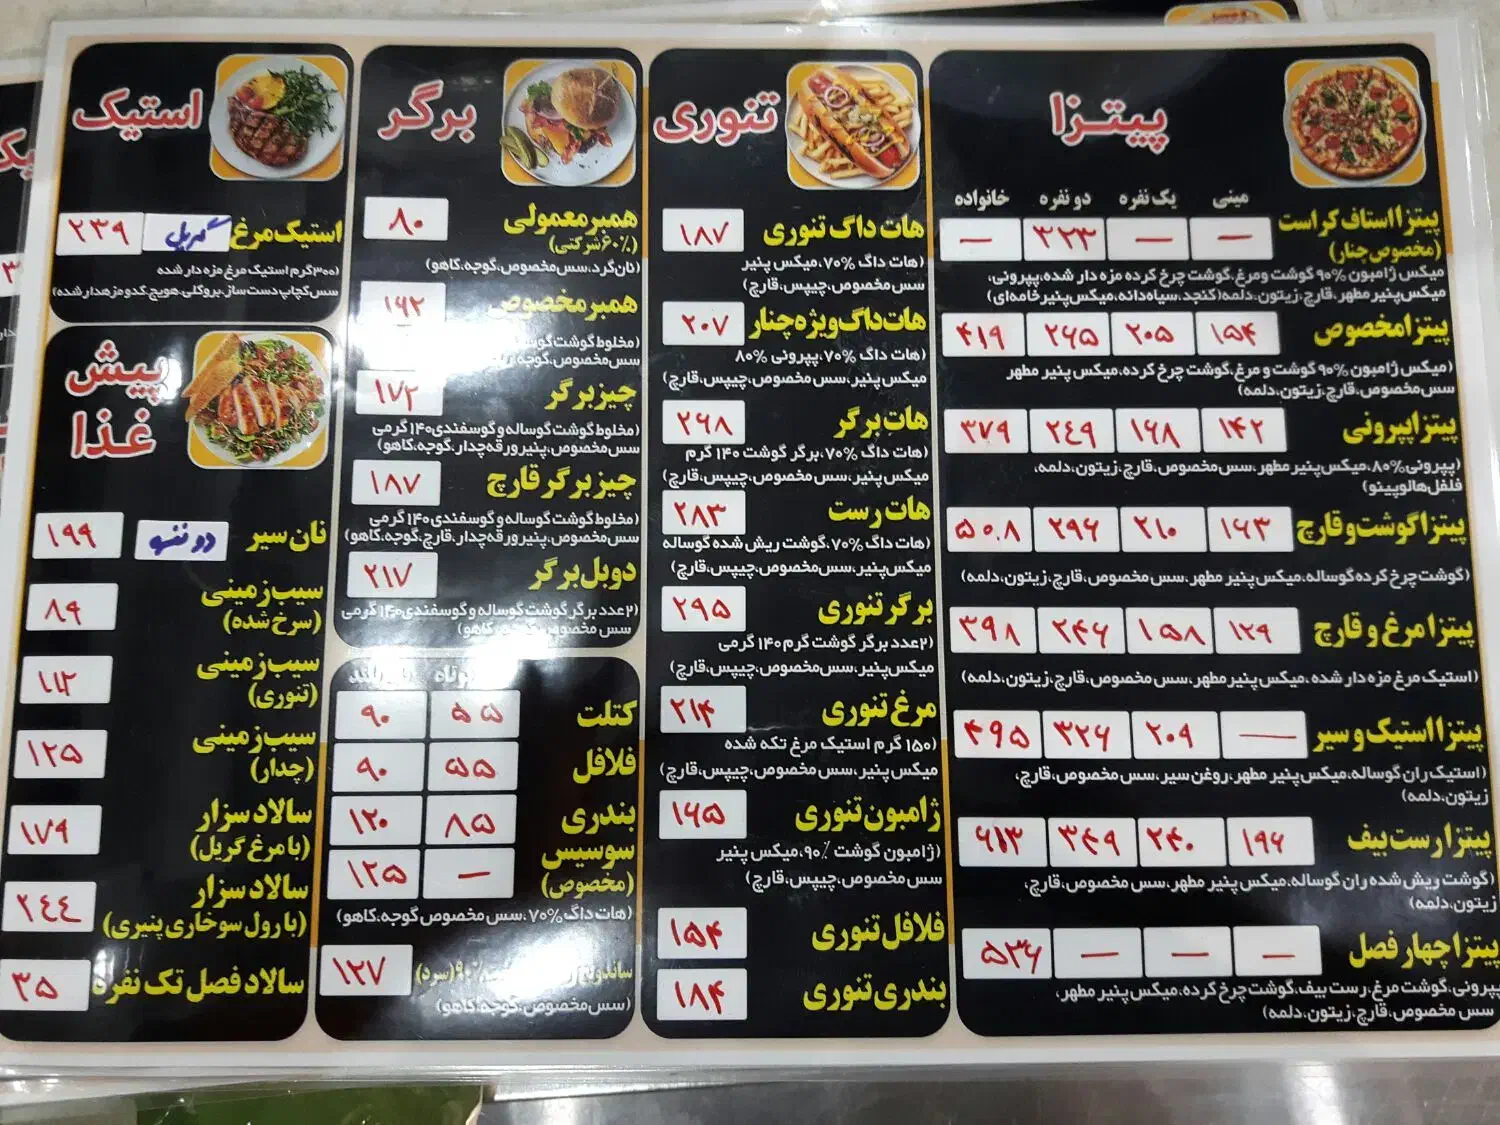 پیتزا
مینی یک نفره دو نفره خانواده
پیتزا استاف کراست — — ۳۲۳ —
(مخصوص چنار)
میکس ژامبون ۹۰% گوشت و مرغ، گوشت چرخ کرده مزه دار شده، پپرونی،
میکس پنیر مطهر، قارچ، زیتون، دلمه (کنجد، سیاه دانه، میکس پنیر خامه ای)
پیتزا مخصوص ۱۵۴ ۲۰۵ ۲۶۵ ۴۱۹
(میکس ژامبون ۹۰% گوشت و مرغ، گوشت چرخ کرده، میکس پنیر مطهر
سس مخصوص، قارچ، زیتون، دلمه)
پیتزا پپرونی ۱۴۲ ۱۶۸ ۲۴۹ ۳۷۹
(پپرونی ۸۰%، میکس پنیر مطهر، سس مخصوص، قارچ، زیتون، دلمه،
فلفل هالوپینو)
پیتزا گوشت و قارچ ۱۶۳ ۲۱۰ ۲۹۶ ۵۰۸
(گوشت چرخ کرده گوساله، میکس پنیر مطهر، سس مخصوص، قارچ، زیتون، دلمه)
پیتزا مرغ و قارچ ۱۲۹ ۱۵۸ ۲۴۶ ۳۹۸
(استیک مرغ مزه دار شده، میکس پنیر مطهر، سس مخصوص، قارچ، زیتون، دلمه)
پیتزا استیک و سیر — ۲۰۹ ۳۲۶ ۴۹۵
(استیک ران گوساله، میکس پنیر مطهر، روغن سیر، سس مخصوص، قارچ،
زیتون، دلمه)
پیتزا رست بیف ۱۹۶ ۲۴۰ ۳۴۹ ۶۱۳
(گوشت ریش شده ران گوساله، میکس پنیر مطهر، سس مخصوص، قارچ،
زیتون، دلمه)
پیتزا چهار فصل — — — ۵۳۶
پپرونی، گوشت مرغ، رست بیف، گوشت چرخ کرده، میکس پنیر مطهر،
سس مخصوص، قارچ، زیتون، دلمه)
تنوری
هات داگ تنوری ۱۸۷
(هات داگ ۷۰%، میکس پنیر
سس مخصوص، چیپس، قارچ)
هات داگ ویژه چنار ۲۰۷
(هات داگ ۷۰%، پپرونی ۸۰%
میکس پنیر، سس مخصوص، چیپس، قارچ)
هات برگر ۲۶۸
(هات داگ ۷۰%، برگر گوشت ۱۴۰ گرم
میکس پنیر، سس مخصوص، چیپس، قارچ)
هات رست ۲۸۳
(هات داگ ۷۰%، گوشت ریش شده گوساله
میکس پنیر، سس مخصوص، چیپس، قارچ)
برگر تنوری ۲۹۵
(۲عدد برگر گوشت گرم ۱۴۰ گرمی
میکس پنیر، سس مخصوص، چیپس، قارچ)
مرغ تنوری ۲۱۴
(۱۵۰ گرم استیک مرغ تکه شده
میکس پنیر، سس مخصوص، چیپس، قارچ)
ژامبون تنوری ۱۶۵
(ژامبون گوشت ۹۰%، میکس پنیر
سس مخصوص، چیپس، قارچ)
فلافل تنوری ۱۵۴
بندری تنوری ۱۸۴
برگر
همبر معمولی ۸۰
(۶۰% شرکتی)
(نان گرد، سس مخصوص، گوجه، کاهو)
همبر مخصوص ۱۶۲
(مخلوط گوشت
سس مخصوص، گوجه
چیز برگر ۱۷۲
(مخلوط گوشت گوساله و گوسفندی ۱۴۰ گرمی
سس مخصوص، پنیر ورقه چدار، گوجه، کاهو)
چیز برگر قارچ ۱۸۷
(مخلوط گوشت گوساله و گوسفندی ۱۴۰ گرمی
سس مخصوص، پنیر ورقه چدار، قارچ، گوجه، کاهو)
دوبل برگر ۲۱۷
(۲عدد برگر گوشت گوساله و گوسفندی ۱۴۰ گرمی
سس مخصوص، گوجه، کاهو)
کتلت ۵۵ ۹۰
فلافل ۵۵ ۹۰
بندری ۸۵ ۱۲۰
سوسیس — ۱۲۵
(مخصوص)
(هات داگ ۷۰%، سس مخصوص گوجه، کاهو)
۹۰% (سرد) ۱۲۷
(سس مخصوص، گوجه، کاهو)
استیک
استیک مرغ گریل ۲۳۹
(۳۰۰ گرم استیک مرغ مزه دار شده
سس کچاپ دست ساز، بروکلی، هویج، کدو مزه دار شده)
پیش
غذا
نان سیر دو نفره ۱۹۹
سیب زمینی ۸۹
(سرخ شده)
سیب زمینی ۱۱۲
(تنوری)
سیب زمینی ۱۲۵
(چدار)
سالاد سزار ۱۷۹
(با مرغ گریل)
سالاد سزار ۲۴۴
(با رول سوخاری پنیری)
سالاد فصل تک نفره ۳۵